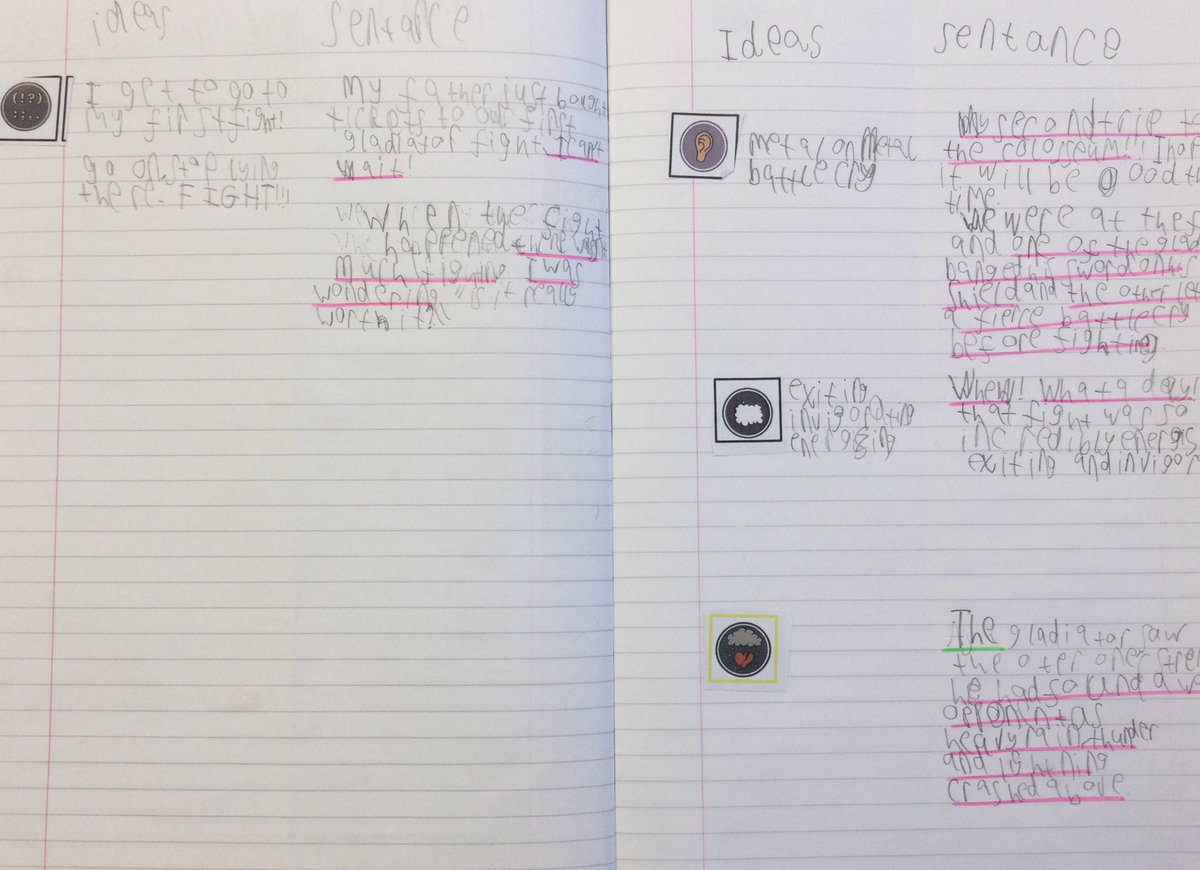 ideas
sentance
(!?)
I get to go to
my first fight!
go on, stop lying
there- FIGHT!!!
My father just bought
tickets to our first
gladiator fight. I cant
wait!
When the fight
happened there wasnt
much fighting I was
wondering "is it really
worth it."
Ideas
sentance
metal on Metal
battle cry
My second trie to
the colosseum!! I hop
it will be good th
time.
We were at the f
and one of the glad
banged his sword on his
shield and the other let
a fierce battle cry
before fighting.
exiting
invigorating
energising
Whew! What a day!
that fight was so
incredibly energis
exiting and invigor
The gladiator saw
the oter ones stre
he had found a wo
opponint as
heavy rain, thunder
and lightning
crashed above.